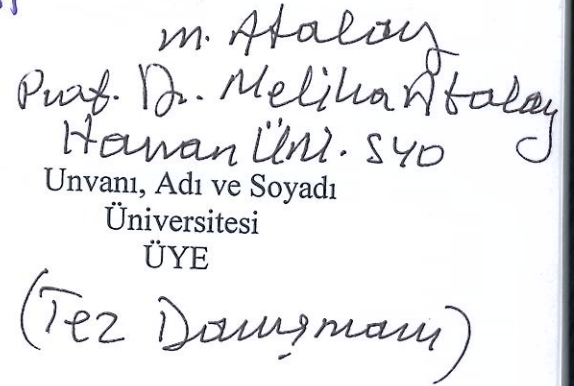 M. Atalay
Prof. Dr. Meliha Atalay
Üni. SYO
Unvanı, Adı ve Soyadı
Üniversitesi
ÜYE
(Tez Danışmanı)